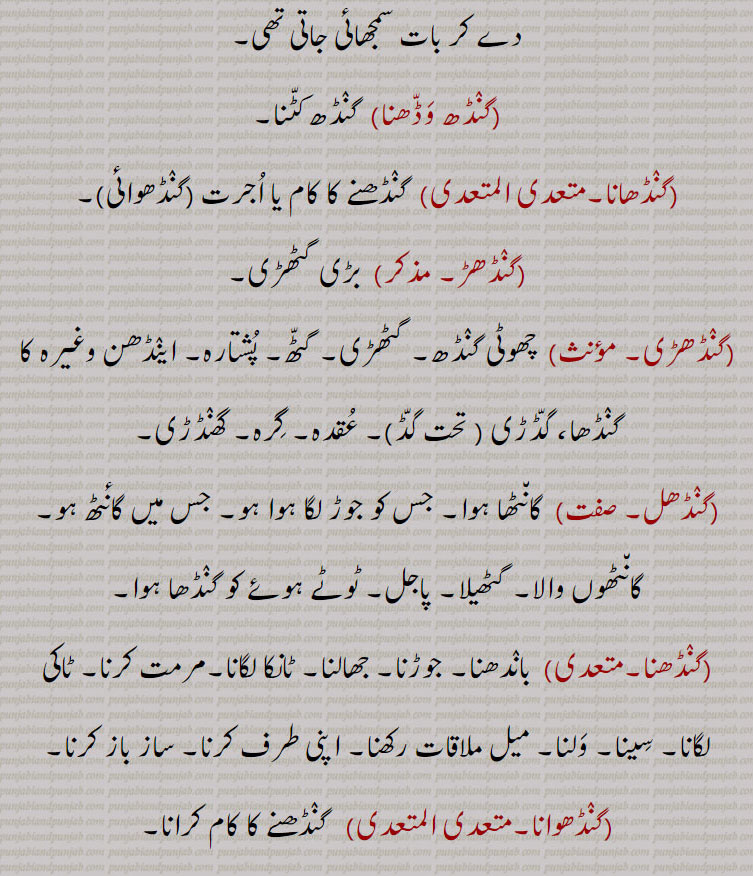 دے کر بات سمجھائی جاتی تھی۔
(گنْڈھ وَڈّھنا) گنْڈھ کٹّنا۔
(گنْڈھانا۔ متعدی المتعدی) گنْڈھنے کا کام یا اُجرت (گنْڈھوائی)۔
(گنْڈھڑ۔ مذکر) بڑی گٹھڑی۔
(گنْڈھڑی۔ مؤنث) چھوٹی گنْڈھ۔ گٹھڑی۔ گٹھّ۔ پُشتارہ۔ اینْڈھن وغیرہ کا
گنْڈھا، گڈّڑی ( تحت گڈّ)۔ عُقدہ۔ گِرہ۔ گھنْڈڑی۔
(گنْڈھل۔ صفت) گانْٹھا ہوا۔ جس کو جوڑ لگا ہوا ہو۔ جس میں گانْٹھ ہو۔
گانْٹھوں والا۔ گٹھیلا۔ پاجل۔ ٹوٹے ہوئے کو گنْڈھا ہوا۔
(گنْڈھنا۔ متعدی) بانْدھنا۔ جوڑنا۔ جھالنا۔ ٹانکا لگانا۔ مرمت کرنا۔ ٹاکی
لگانا۔ سِینا۔ وَلنا۔ میل ملاقات رکھنا۔ اپنی طرف کرنا۔ ساز باز کرنا۔
(گنْڈھوانا۔ متعدی المتعدی) گنْڈھنے کا کام کرانا۔